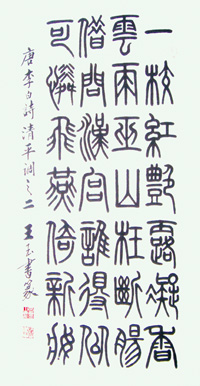 一枝紅豔露凝香
雲雨巫山枉斷腸
借問漢宮誰得似
可憐飛燕倚新妝
唐李白詩清平調之二 王玉書篆